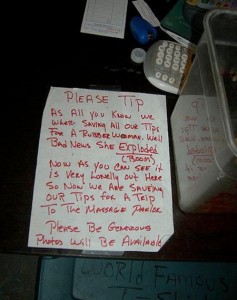 PLEASE TIP
AS ALL YOU KNOW WE
WHERE SAVING ALL OUR TIPS
FOR A RUBBER WOMAN. WELL
BAD NEWS SHE EXPLODED
(BOOM)
NOW AS YOU CAN SEE IT
IS VERY LONELY OUT HERE
SO NOW WE ARE SAVEING
OUR TIPS FOR A TRIP
TO THE MASSAGE PARLOR
PLEASE BE GENEROUS
PHOTOS WILL BE AVAILABLE
WORLD FAMOUS